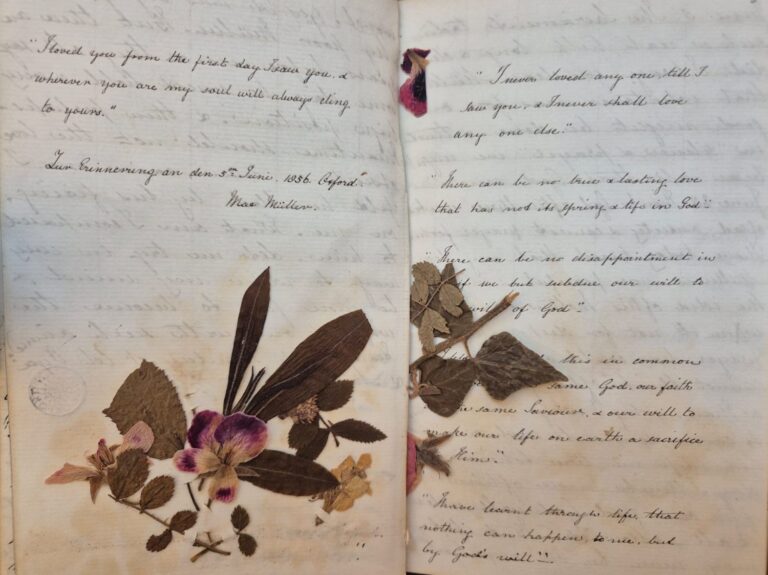 "I loved you from the first day I saw you, &
wherever you are my soul will always cling
to yours."
Zur Erinnerung an den 5ten Juni. 1856. Oxford"
Max Müller.
"I never loved any one, till I
saw you, & I never shall love
any one else."
"There can be no true & lasting love
that has not its spring & life in God".
"There can be no disappointment in
if we but subdue our will to
will of God".
this in common
same God, our faith
the same Saviour, & our will to
make our life on earth a sacrifice
Him".
"I have learnt through life, that
nothing can happen to me, but
by God's will".